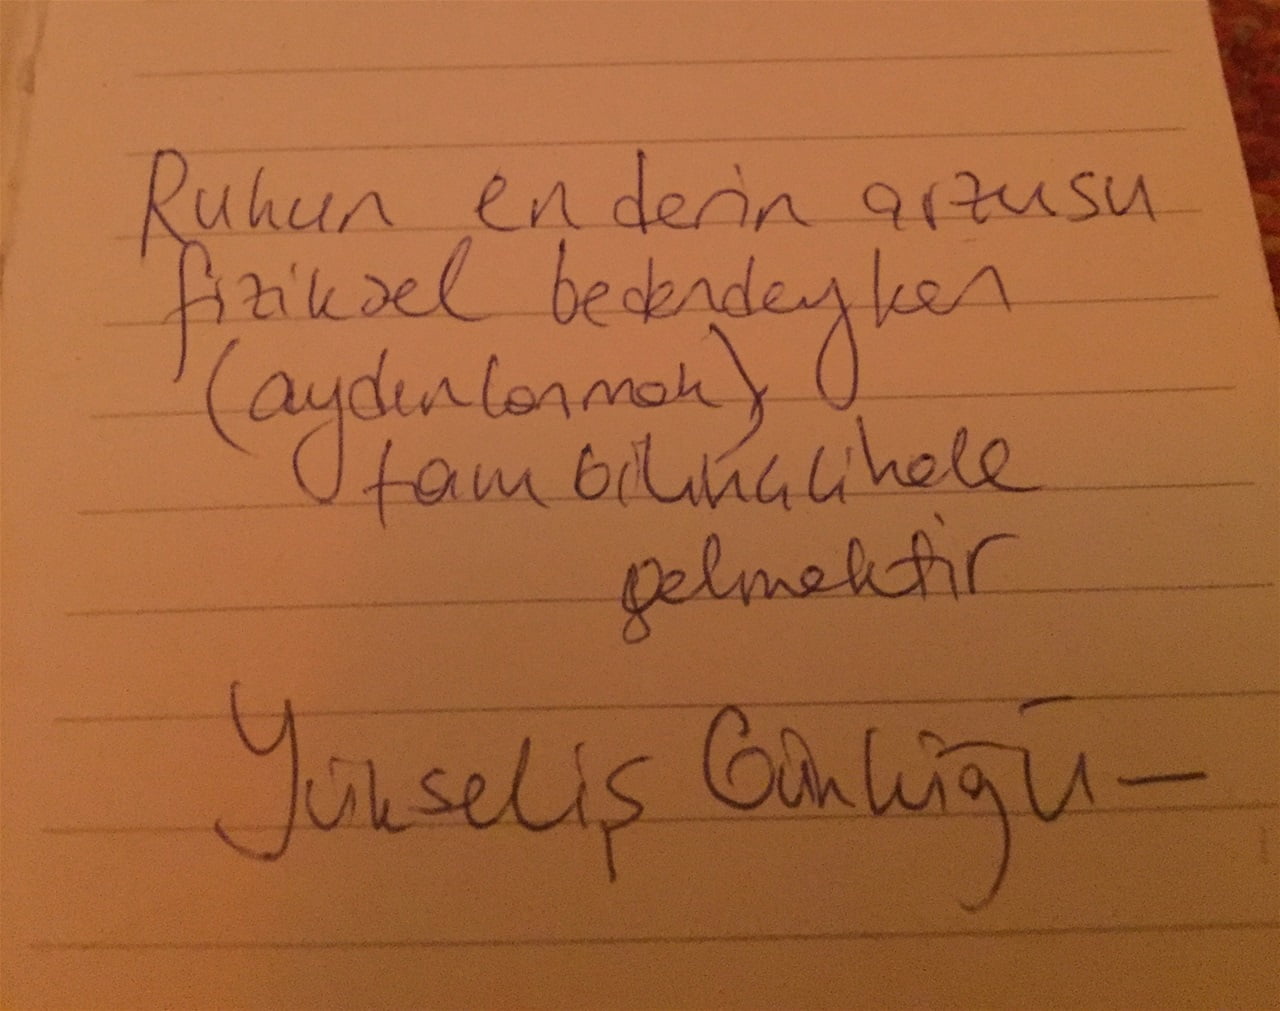 Ruhun en derin arzusu
fiziksel bedendeyken
(aydınlanmak)
tam bilinçli hale
gelmektir
Yükseliş Günlüğü—